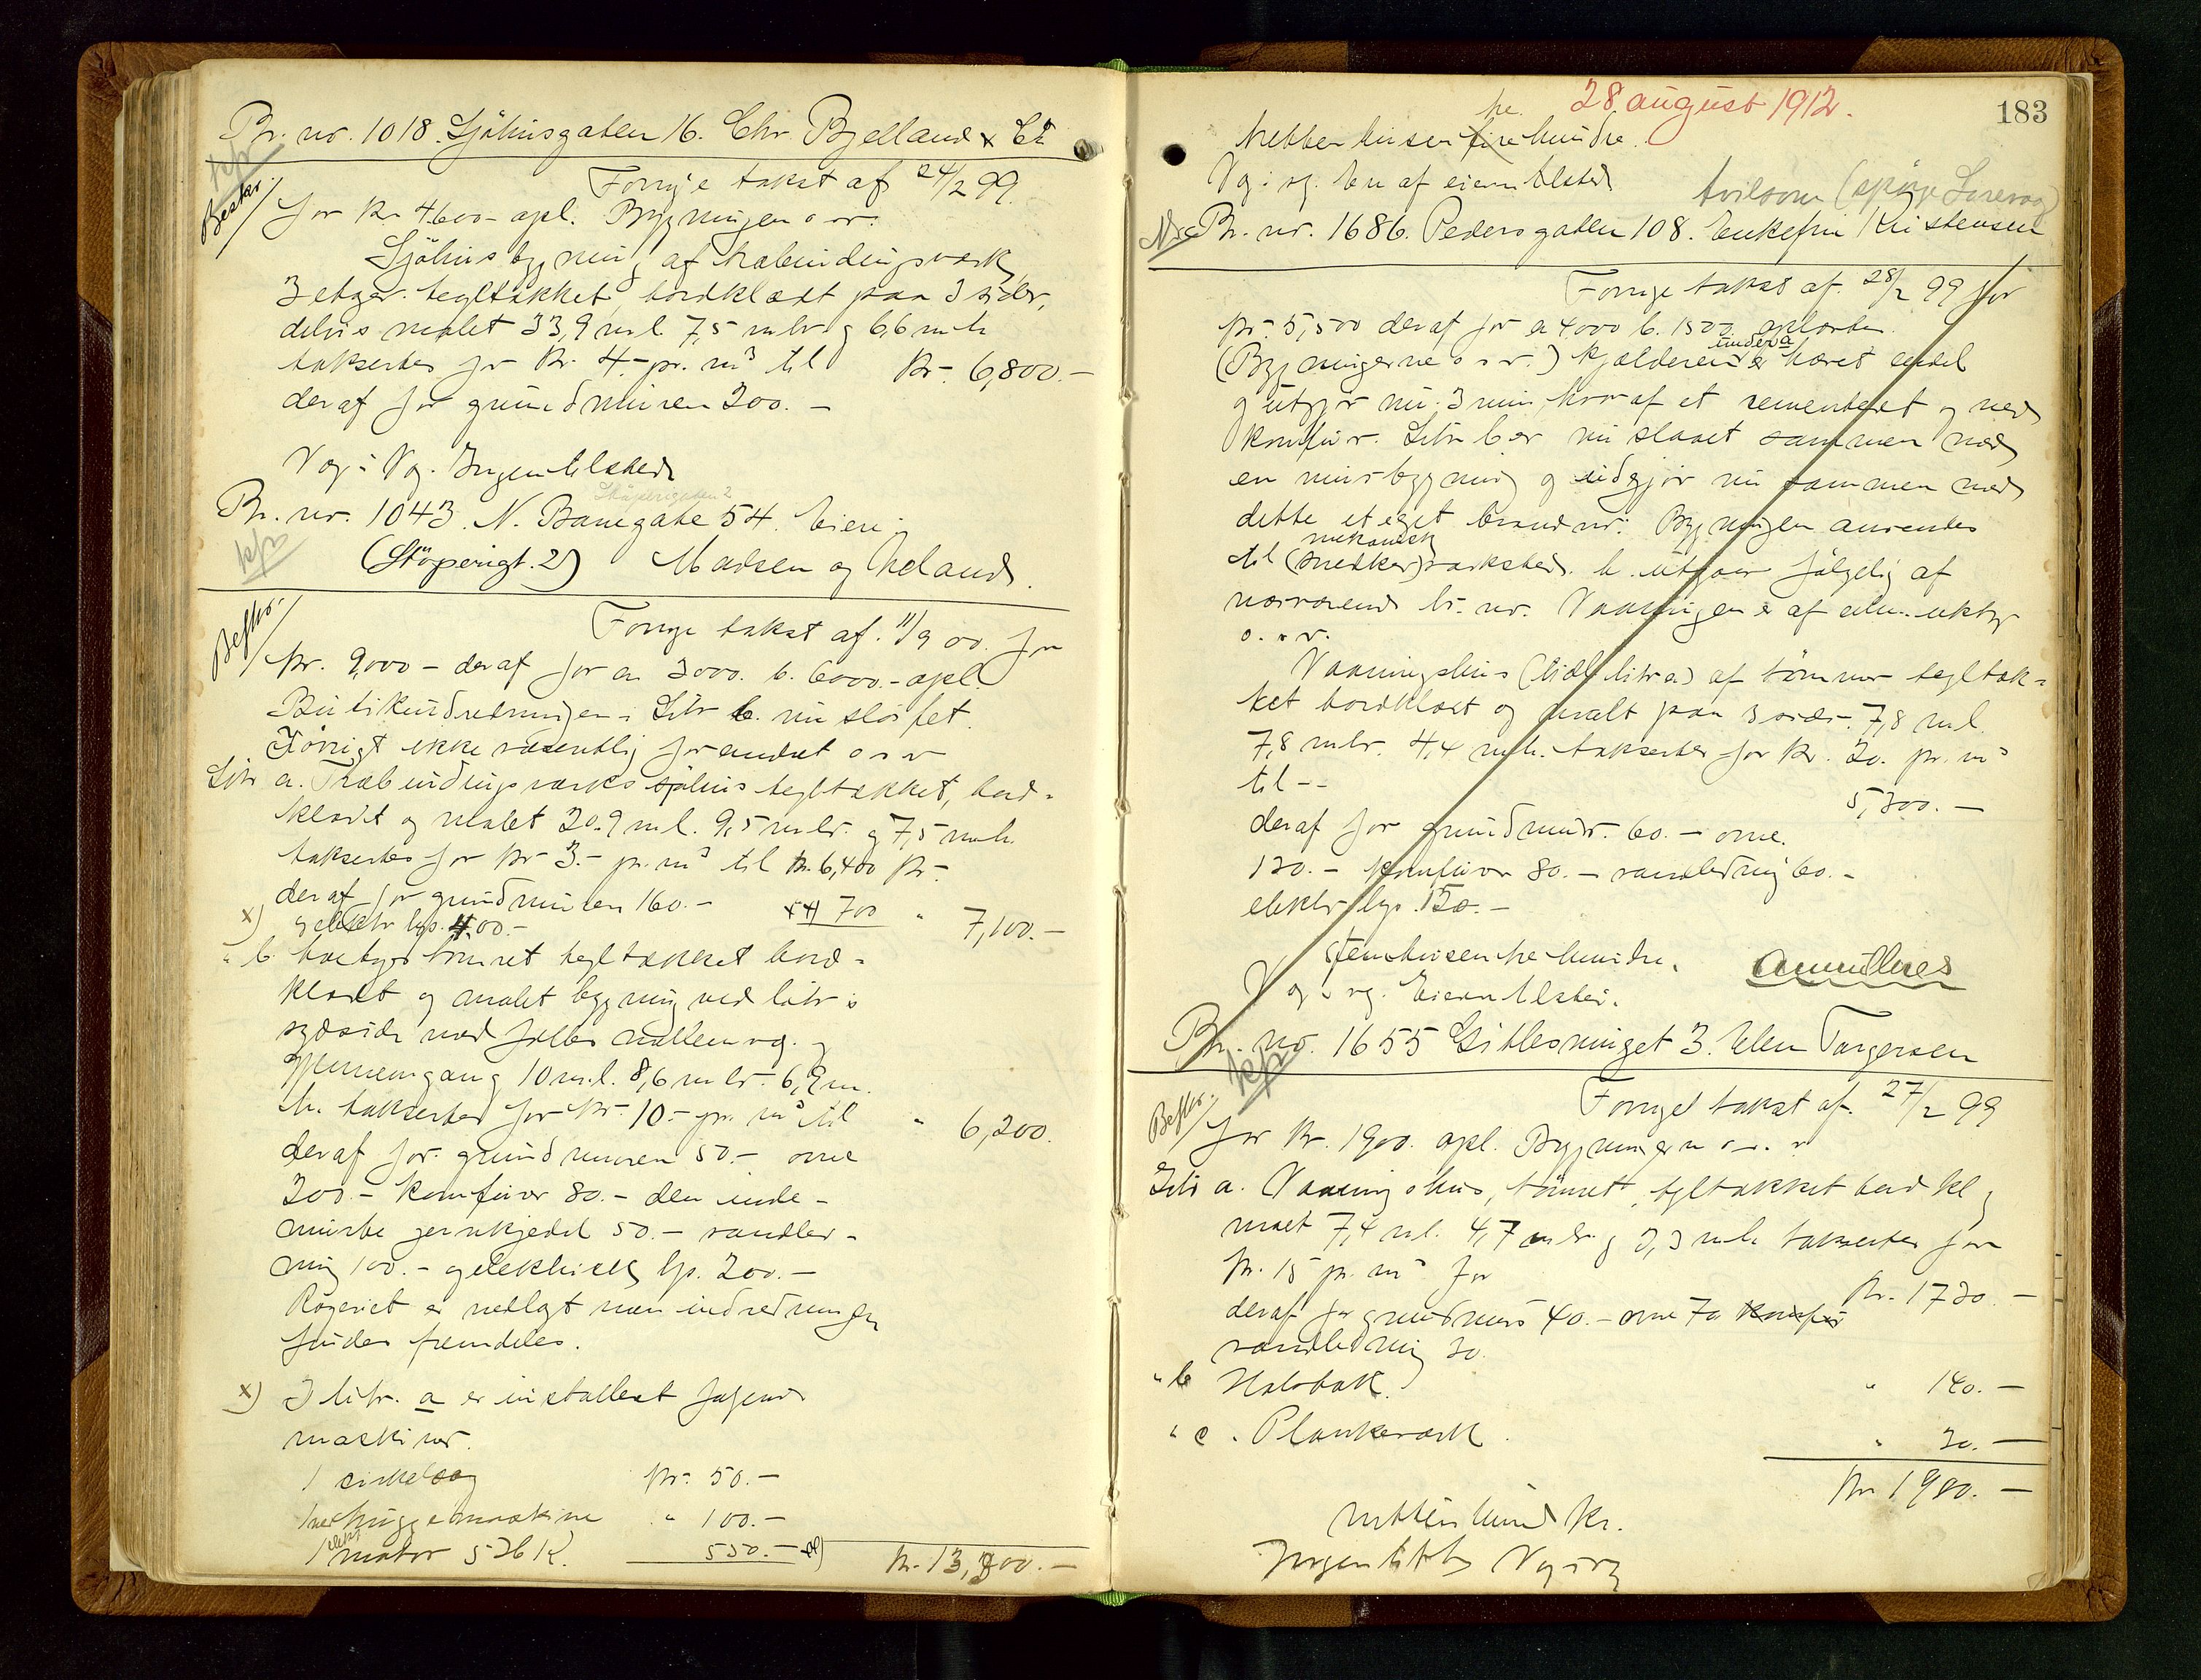 Br. nr. 1018. Sjöhusgaten 16. Chr. Bjelland & Co
kfr
Beskr.
Forrige takst af 24/2 99.
for Kr. 4600- opl. Bygningen o.s.v.
Sjöhusbygning af træbindingsverk,
3 etager. tegltækket bordklædt paa 3 sider,
delvis malet 33,9 m.l. 7,5 m br. og 6,6 m.h.
taksertes for Kr. 4.- pr. m3 til Kr. 6,800.-
deraf for grundmuren 300.-
V og i Vg. Ingen tilstede
Støperigaten 2
Br. nr. 1043. N. Banegate 54. Eiere:
kfr
(Støperigt. 2) Madsen og Meland.
Beskr.
Forrige takst af 11/9 00. for
Kr. 9,000 - deraf for a 3000. b. 6000.- opl.
Butikindretningen i Litr b. nu sløifet.
Iövrigt ikke væsentlig forandret o s v
Litr a. Træbindingsværks sjöhus tegltækket, bord-
klædt og malet 30.9 m.l. 9,5 m br. og 7,5 m.h.
taksertes for Kr 3.- pr. m3 til Kr. 6,400 Kr.
deraf for grundmuren 160.- xx) 700 " 7,100.-
x) og elektr lys. 400.-
" b. toetages tömret tegltækket bord-
klædt og malet bygning ved litr a's
sydside med fælles mellemvæg. og
gjennemgang 10 m.l. 8,6 m br. 6,9 m.
h. taksertes for Kr. 10.- pr. m3 til " 6,200.
deraf for grundmuren 50.- ovne
200.- komfurer 80.- den inde-
murte jernkjedel 50.- vandled-
ning 100.- og elektrisk lys. 200.-
Røgeriet er nedlagt men indredningen
findes fremdeles.
x) I litr. a er installert følgende
maskiner.
1 cirkelsag Kr. 50.-
1 huggemaskine " 100.-
1 elektr motor 5 HK. 550.- xx) Kr. 13,300.-
28 august 1912.
183
tre
trettentusen fire hundre.
V og i vg. En af eierne tilstede
tvilsom (spørg Sørevåg)
Br. nr. 1686. Pedersgaten 108. Enkefru Kristensen
Forrige takst af. 28/2 99 for
Kr. 5,500 deraf for a 4000 b. 1500 oplæstes.
(Bygningerne o s v.) Kjælderen under a er hævet endel
og utgjør nu. 3 rum, hvoraf et cementeret og med
komfur. Litr b er nu slaaet sammen med
en nursbygning og utgjør nu sammen med
dette et eget brandnr. Bygningen anvendes
til (snedker) mekanisk verksted. b. utgaar følgelig af
nærværende br. nr. Vaaningen er af alm. utstyr
o. s. v.
Vaaningshus (tidl litr a) af tömmer tegltæk-
ket bordklædt og malt paa 3 sider. 7,8 m.l.
7,8 m br. 4,4 m.h. taksertes for Kr. 20. pr. m3
til -- 5,300.-
deraf for grundmur. 60.- ovne.
130.- komfurer 80.- vandledning 60.-
elektr lys. 150.-
femtusen tre hundre.
V og i vg. Eieren tilstede.
Annulleres
Br. nr. 1655 Gitlesmuget 3. Elen Torgersen
kfr
Beskr.
Forrige takst af. 27/2 99
for Kr. 1900. opl. Bygningerne o. s. v
Litr a. Vaaningshus, tömret, tegltækket bord kl og
malt 7,4 m.l. 4,7 m br. og 3,3 m.h. taksertes for
Kr. 15 pr. m3 for Kr. 1730.-
deraf for grundmur 40.- ovne 70. komfur
vandledning 30.
" b Halvtak. " 140.-
" c. Plankeverk. " 30.-
Kr 1900.-
nitten hund Kr.
Ingen tilst. V og i vg